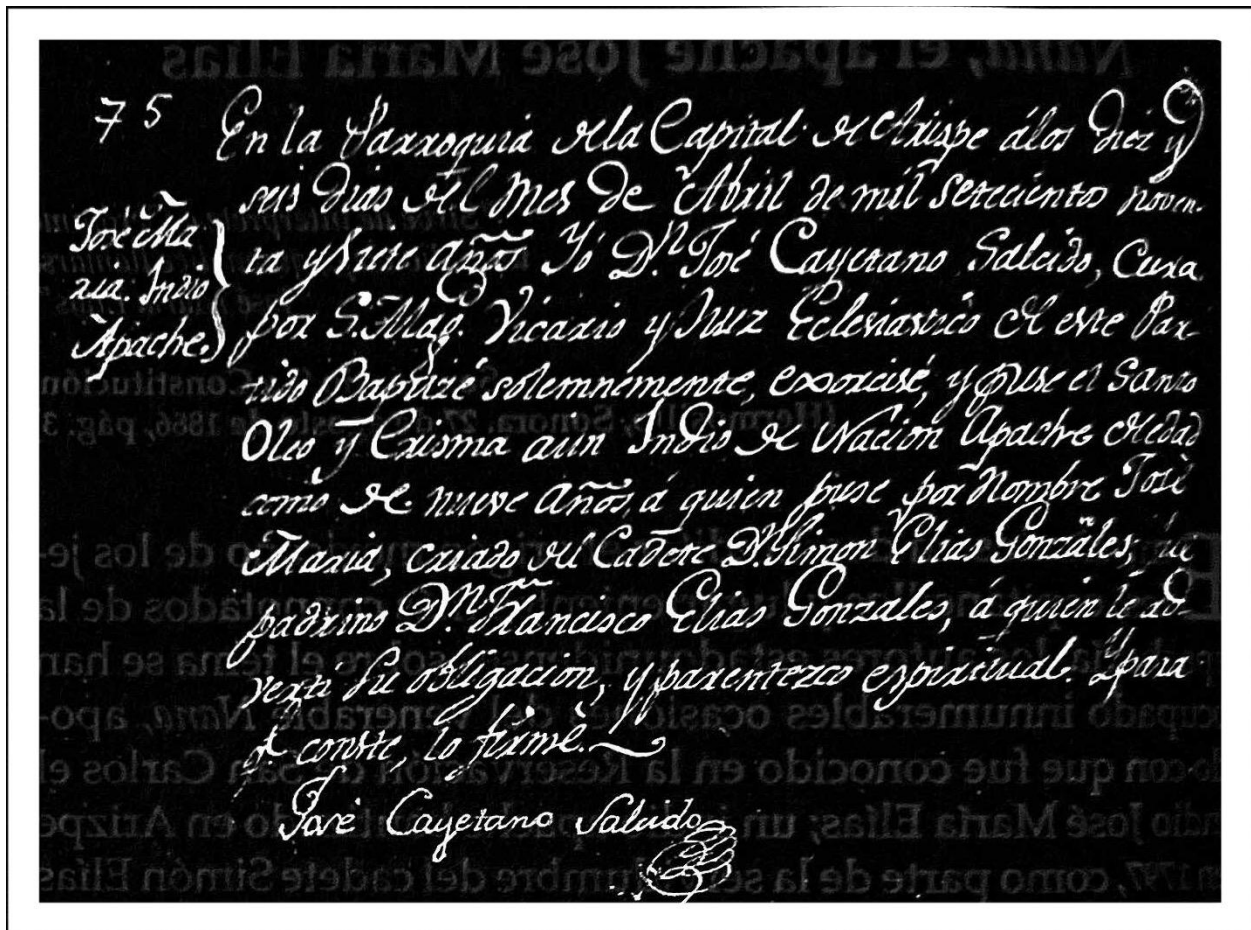 75
José Ma
ria. Indio
Apache.
En la Parroquia de la Capital de Arispe á los diez y
seis dias del Mes de Abril de mil setecientos noven-
ta y siete años Yó Dn. José Cayetano Salcido, Cura
por S. Mag. Vicario y Juez Eclesiastico de este Par-
tido Baptizé solemnemente, exorcisé, y puse el Santo
Oleo y Crisma a un Indio de Nacion Apache de edad
como de nueve años, á quien puse por Nombre José
Maria, criado del Cadete Dn. Simon Elias Gonzales, fue
padrino Dn. Francisco Elias Gonzales, á quien le ad-
verti su obligacion, y parentezco espiritual. Y para
qe. conste, lo firmé.
José Cayetano Salcido